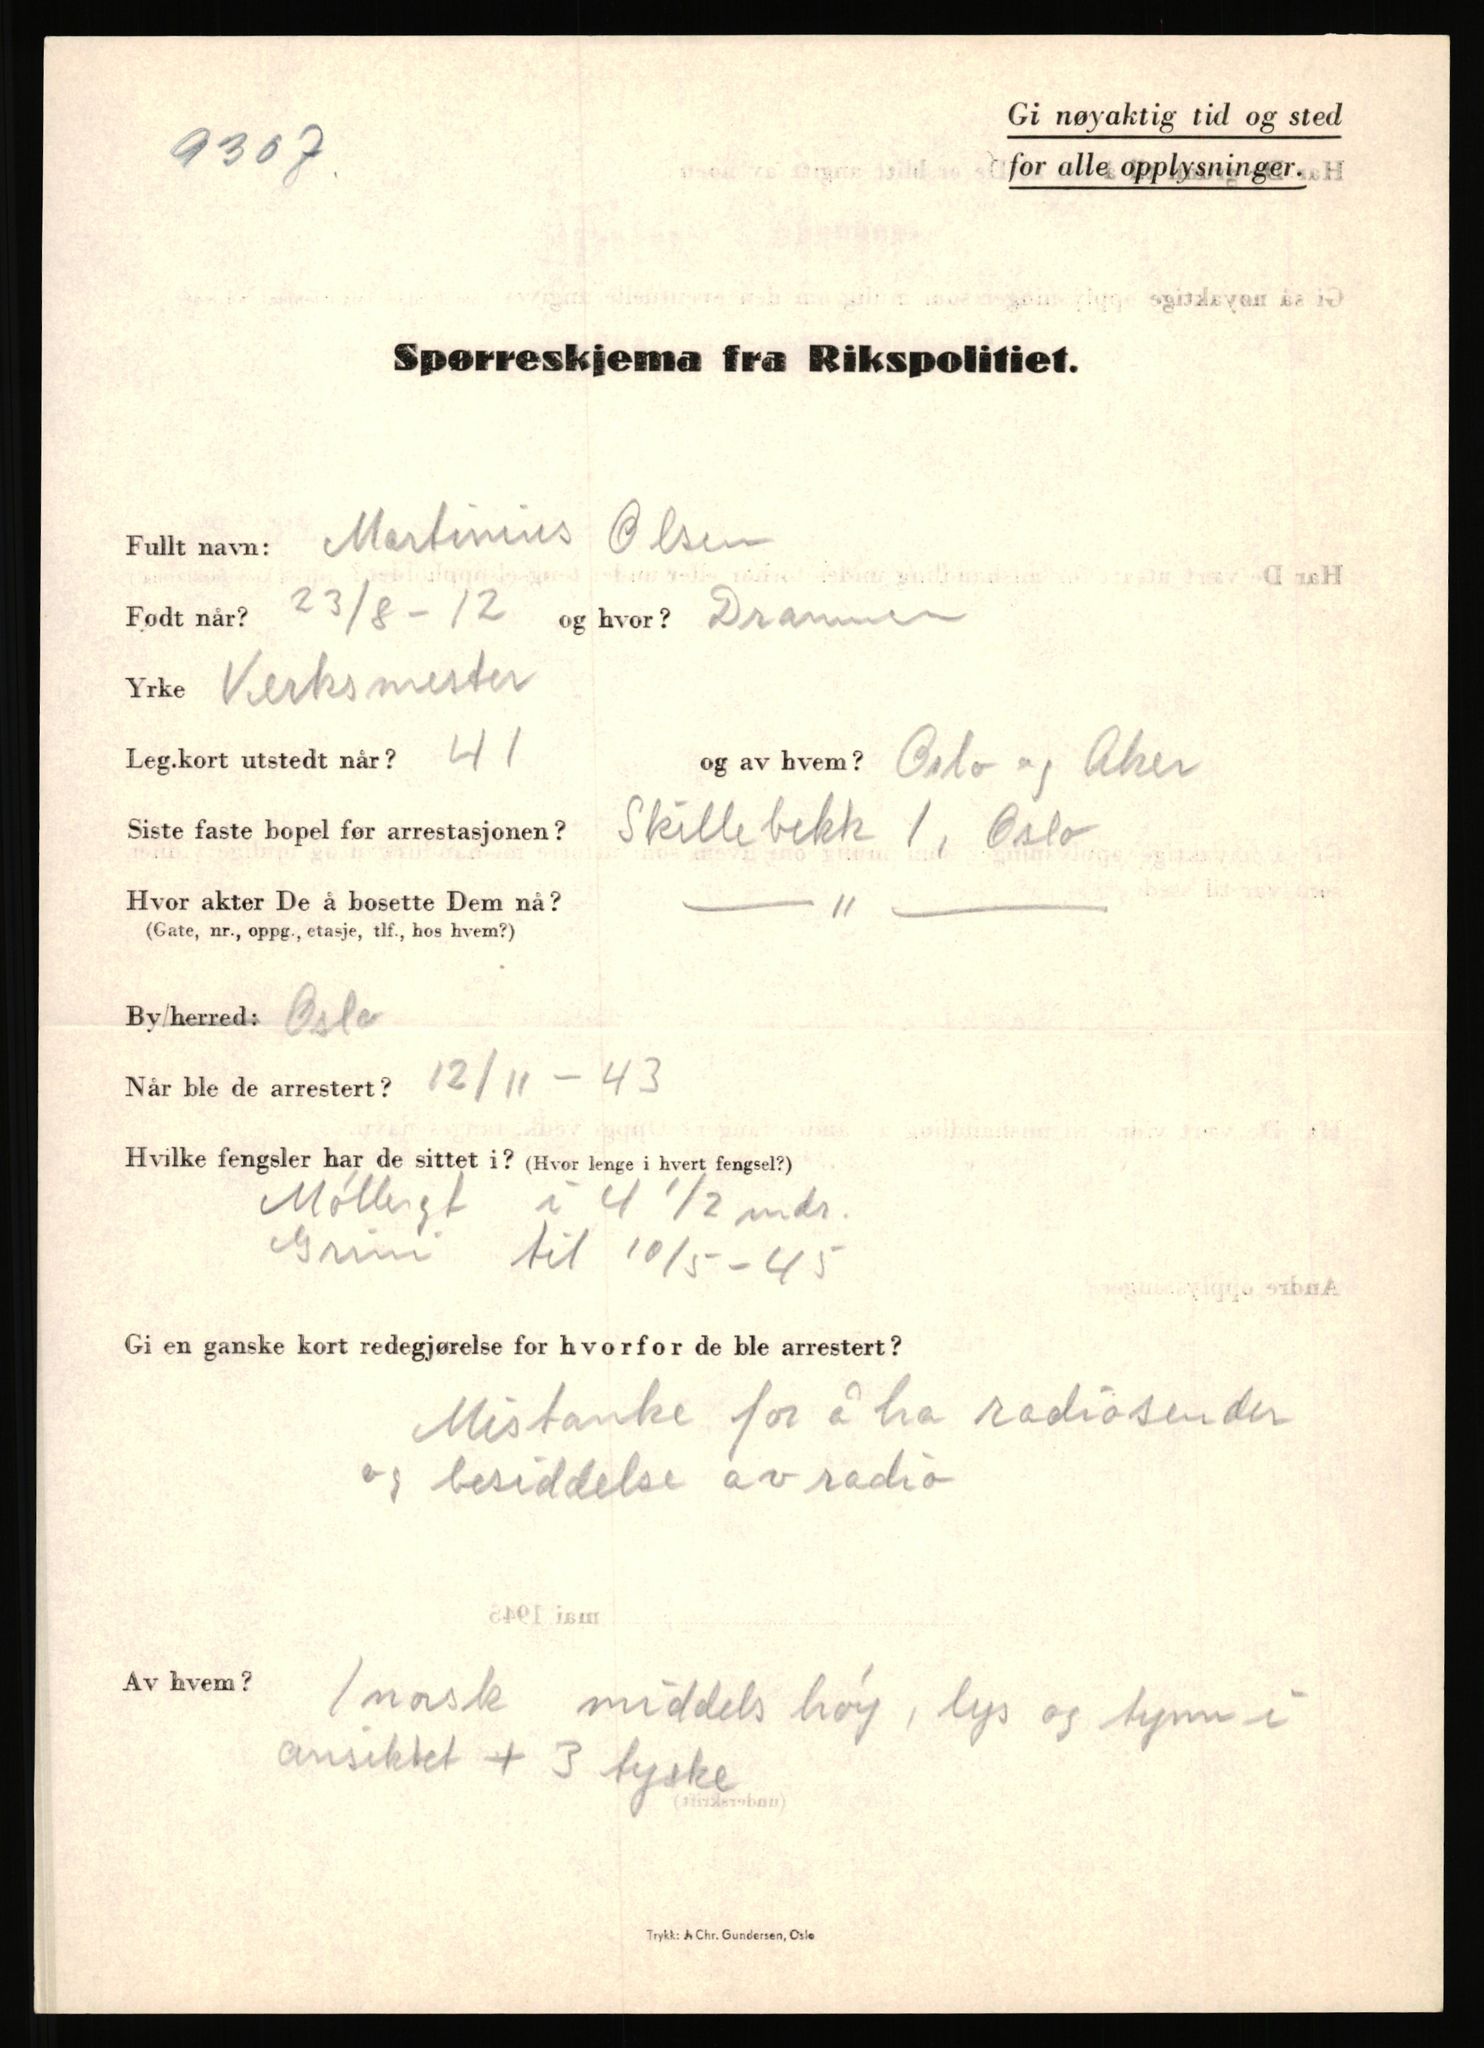 9307.
Gi nøyaktig tid og sted
for alle opplysninger.
Spørreskjema fra Rikspolitiet.
Fullt navn: Martinius Olsen
Født når? 23/8 - 12 og hvor? Drammen
Yrke Verksmester
Leg.kort utstedt når? 41 og av hvem? Oslo og Aker
Siste faste bopel før arrestasjonen? Skillebekk 1, Oslo
Hvor akter De å bosette Dem nå? — " —
(Gate, nr., oppg., etasje, tlf., hos hvem?)
By/herred: Oslo
Når ble de arrestert? 12/11 - 43
Hvilke fengsler har de sittet i? (Hvor lenge i hvert fengsel?)
Møllergt i 4 1/2 mdr.
Grini til 10/5 - 45
Gi en ganske kort redegjørelse for hvorfor de ble arrestert?
Mistanke for å ha radiosender
og besiddelse av radio
Av hvem? 1 norsk middels høy, lys og tynn i
ansiktet + 3 tyske
Trykk: A Chr. Gundersen, Oslo